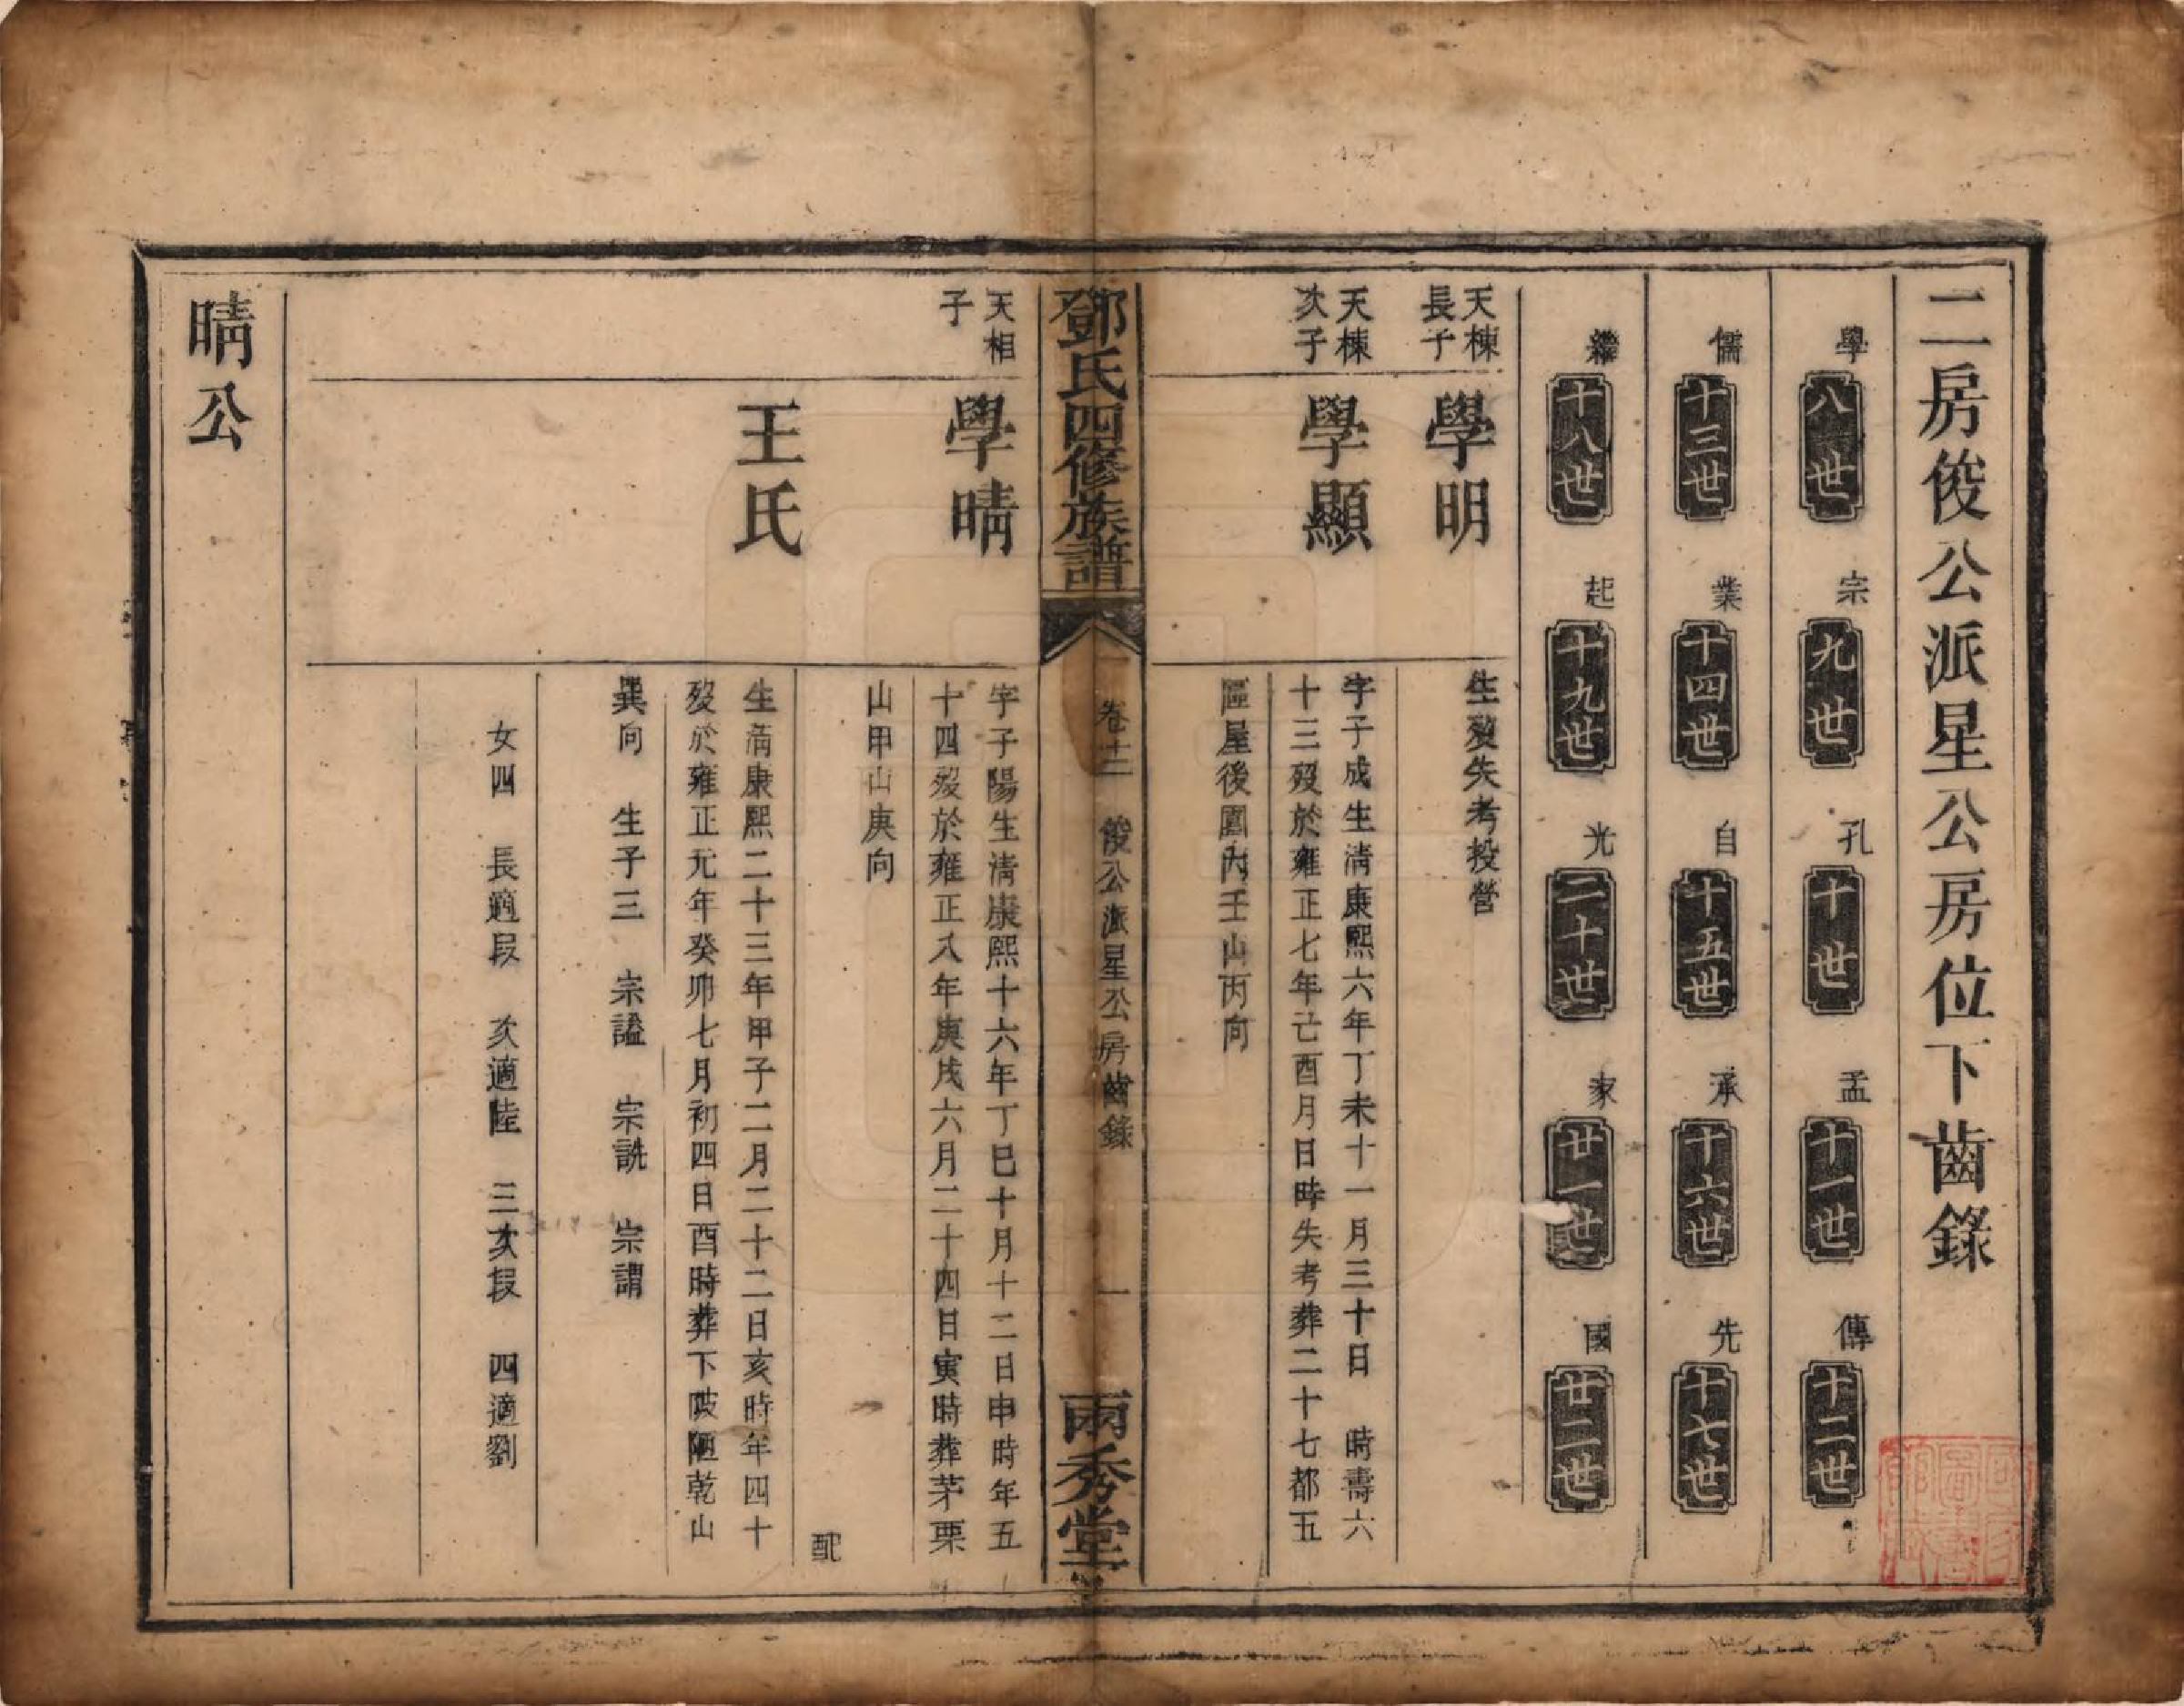 二房俊公派星公房位下齒錄
學 八世 宗 九世 孔 十世 孟 十一世 傳 十二世
儒 十三世 業 十四世 自 十五世 承 十六世 先 十七世
繼 十八世 起 十九世 光 二十世 家 廿一世 國 廿二世
天棟
長子
學明
生歿失考投營
天棟
次子
學顯
字子成生清康熙六年丁未十一月三十日 時壽六
十三歿於雍正七年己酉月日時失考葬二十七都五
區屋後園內壬山丙向
鄧氏四修族譜
卷十二 俊公派星公房齒錄
一
兩秀堂
天相
子
學晴
字子陽生清康熙十六年丁巳十月十二日申時年五
十四歿於雍正八年庚戌六月二十四日寅時葬茅栗
山甲山庚向
配
王氏
生清康熙二十三年甲子二月二十二日亥時年四十
歿於雍正元年癸卯七月初四日酉時葬下陂陋乾山
巽向 生子三 宗謐 宗詵 宗謂
女四 長適段 次適陸 三次段 四適劉
晴公